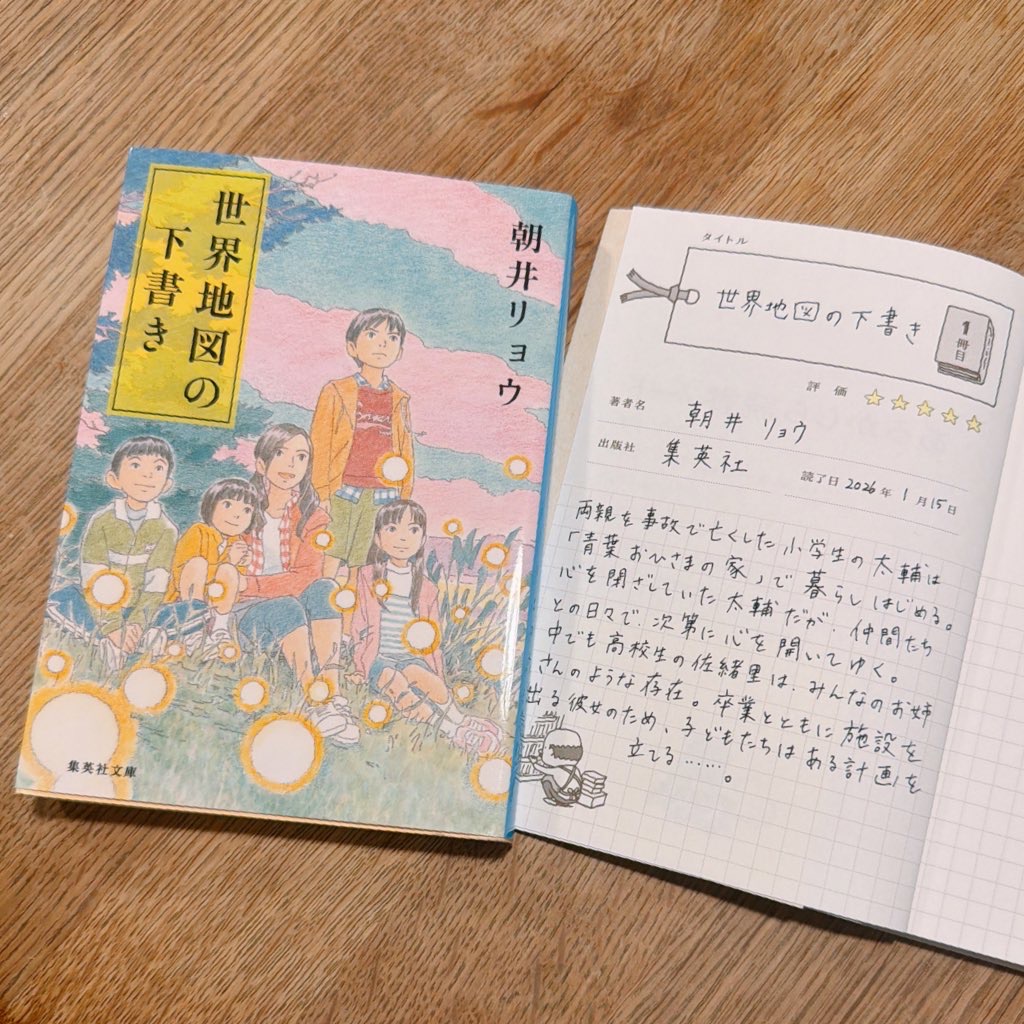 世界地図の
下書き
朝井リョウ
集英社文庫
タイトル
世界地図の下書き
1
冊目
評価
著者名 朝井リョウ
出版社 集英社
読了日 2026年 1月 15日
両親を事故で亡くした小学生の太輔は
「青葉おひさまの家」で暮らしはじめる。
心を閉ざしていた太輔だが、仲間たち
との日々で、次第に心を開いてゆく。
中でも高校生の佐緒里は、みんなのお姉
さんのような存在。卒業とともに施設を
出る彼女のため、子どもたちはある計画を
立てる……。